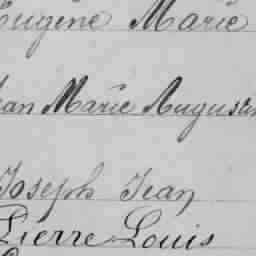 Eugène Marie
Jean Marie Augustin
Joseph Jean
Pierre Louis